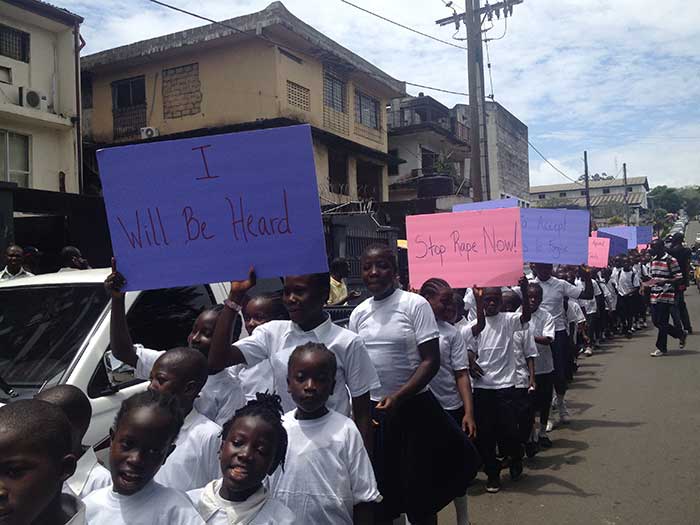 I
Will Be Heard
Stop Rape Now!
Accept